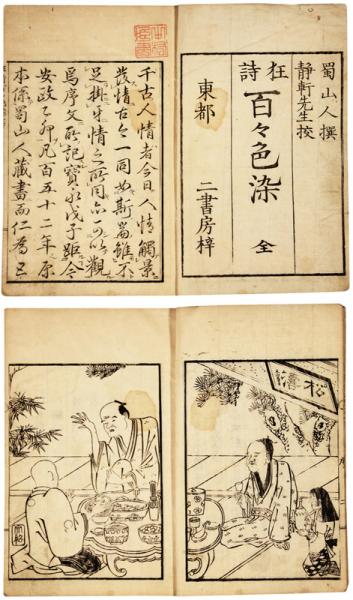 蜀山人撰
静軒先生挍
狂詩 百々色染 全
東都 二書房梓
千古人情者今日人情觸景
發情古今一同如斯篇雖不
足掛牙情之所同亦可以觀
焉序文所記寶永戊子距今
安政乙卯凡百五十二年原
本係蜀山人藏